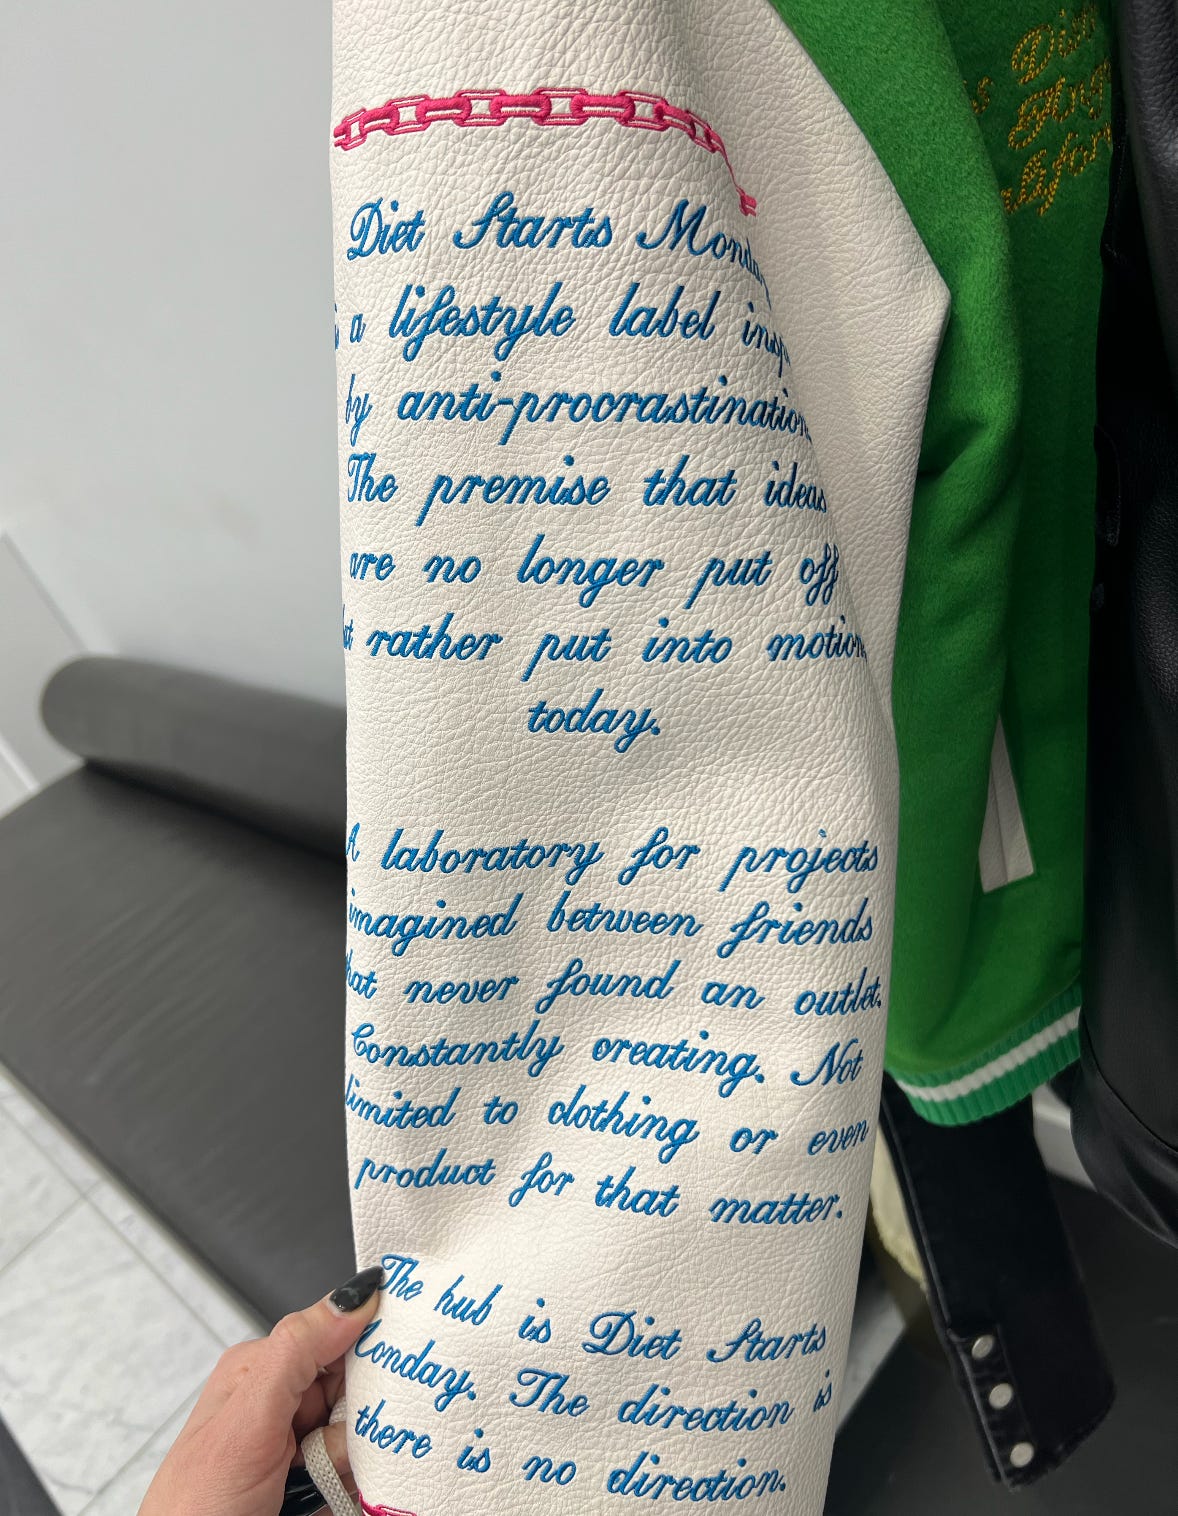 Diet Starts Monday
a lifestyle label
by anti-procrastination
The premise that ideas
are no longer put off
rather put into motion
today.
A laboratory for projects
imagined between friends
that never found an outlet.
Constantly creating. Not
limited to clothing or even
product for that matter.
The hub is Diet Starts
Monday. The direction is
there is no direction.